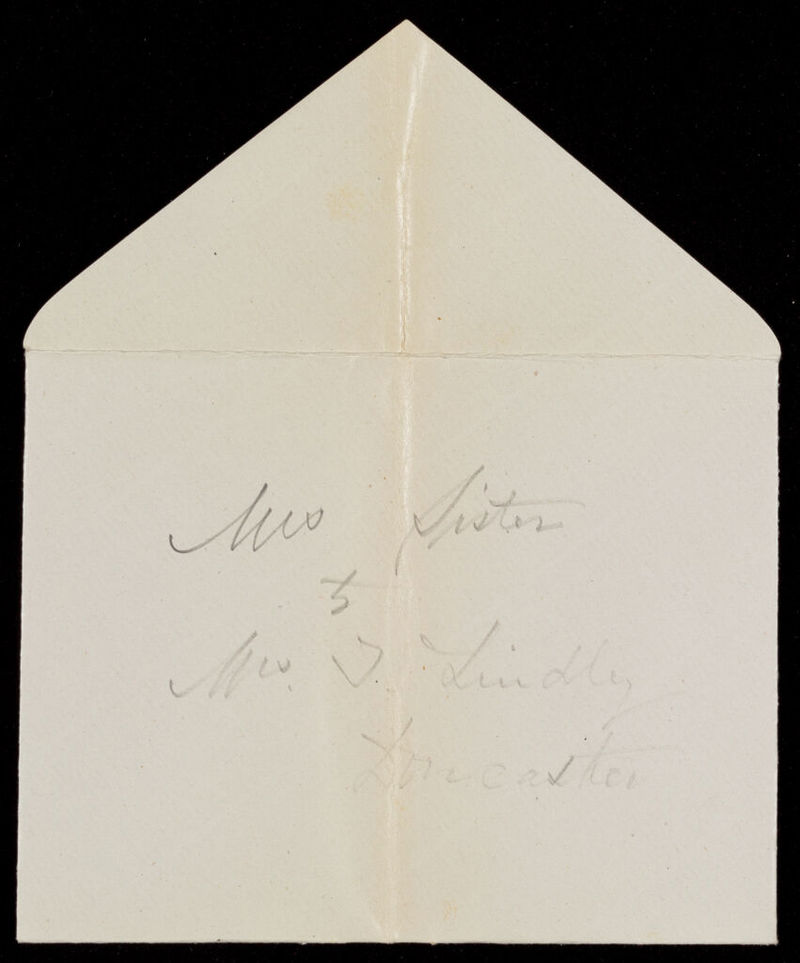 Mrs Lister
to
Mrs. T. Lindley
Doncaster